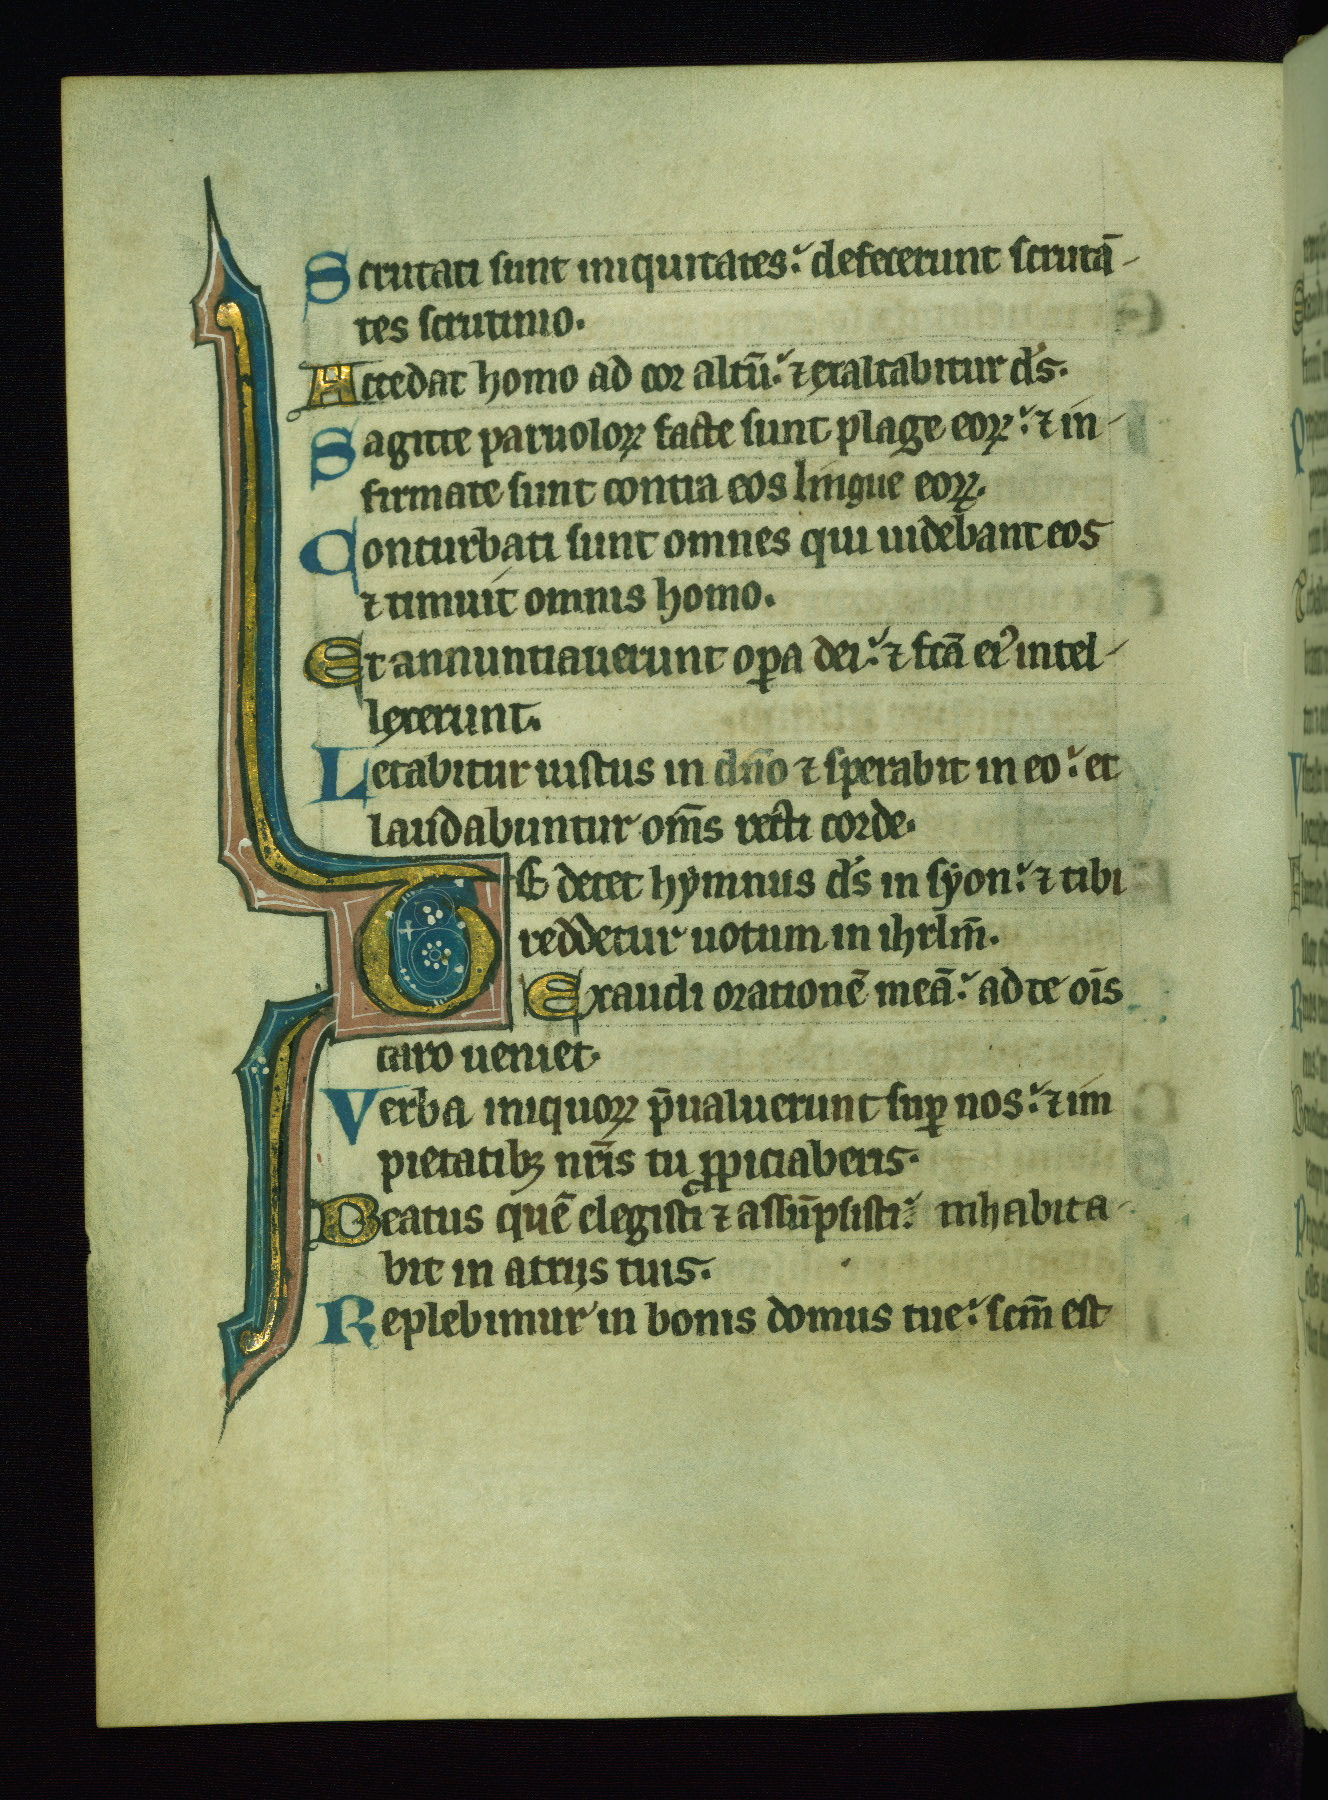 Scrutati sunt iniquitates: defecerunt scrutā-
tes scrutinio.
Accedat homo ad cor altū: ⁊ exaltabitur d̄s.
Sagitte paruoloꝝ facte sunt plage eoꝝ: ⁊ in-
firmate sunt contra eos lingue eoꝝ.
Conturbati sunt omnes qui uidebant eos
⁊ timuit omnis homo.
Et annuntiauerunt oꝑa dei: ⁊ fc̄a ei᾿ intel-
lexerunt.
Letabitur iustus in dn̄o ⁊ sperabit in eo: et
laudabuntur om̄s recti corde.
TE decet hymnus d̄s in syon: ⁊ tibi
reddetur uotum in ihrl̄m.
Exaudi orationē meā: ad te oīs
caro ueniet.
Verba iniquoꝝ p̄ualuerunt suꝑ nos: ⁊ im
pietatibꝫ nr̄is tu ꝓpiciaberis.
Beatus quē elegisti ⁊ assūpsisti: inhabita-
bit in atrijs tuis.
Replebimur in bonis domus tue: scm̄ est